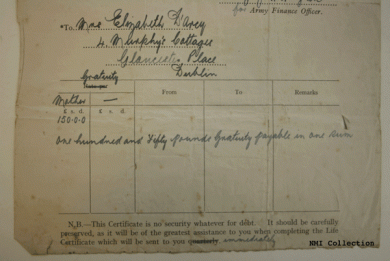 for Army Finance Officer.
To. Mrs Elizabeth Darcy
4 Murphy's Cottages
Gloucester Place
Dublin
Gratuity
Mother —
From To Remarks
£ s. d. £ s. d.
150.0.0
One hundred and Fifty pounds Gratuity payable in one sum
N.B.—This Certificate is no security whatever for debt. It should be carefully
preserved, as it will be of the greatest assistance to you when completing the Life
Certificate which will be sent to you quarterly immediately
NMI Collection